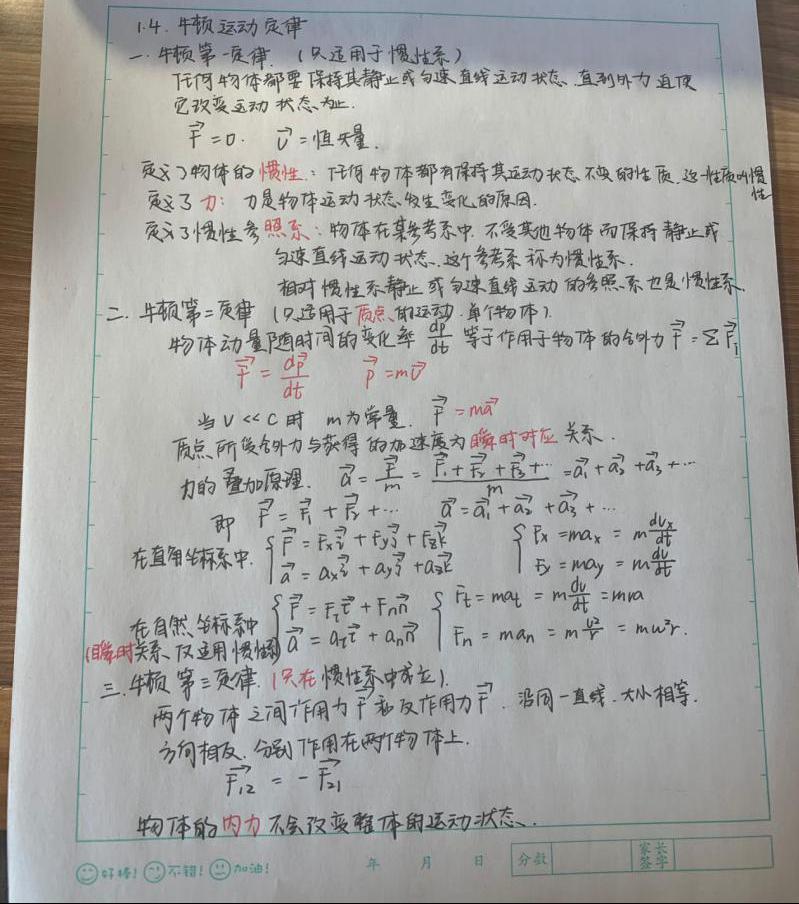 1.4. 牛顿运动定律
一. 牛顿第一定律. (只适用于惯性系)
任何物体都要保持其静止或匀速直线运动状态, 直到外力迫使
它改变运动状态为止.
F⃗ = 0. v⃗ = 恒矢量.
定义了物体的惯性: 任何物体都有保持其运动状态不变的性质, 这一性质叫惯性
定义了力: 力是物体运动状态发生变化的原因.
定义了惯性参照系: 物体在某参考系中, 不受其他物体而保持静止或
匀速直线运动状态, 这个参考系称为惯性系.
相对惯性系静止或匀速直线运动的参照系也是惯性系.
二. 牛顿第二定律 (只适用于质点的运动. 单个物体).
物体动量随时间的变化率 dp⃗/dt 等于作用于物体的合外力 F⃗ = ΣF⃗i
F⃗ = dp⃗/dt p⃗ = mv⃗
当 V << C 时 m为常量. F⃗ = ma⃗
质点所受合外力与获得的加速度为瞬时对应关系.
力的叠加原理. a⃗ = F⃗/m = (F⃗1 + F⃗2 + F⃗3 + …)/m = a⃗1 + a⃗2 + a⃗3 + …
即 F⃗ = F⃗1 + F⃗2 + … a⃗ = a⃗1 + a⃗2 + a⃗3 + …
在直角坐标系中. { F⃗ = Fxi⃗ + Fyj⃗ + Fzk⃗ { Fx = max = m dvx/dt
a⃗ = axi⃗ + ayj⃗ + azk⃗ Fy = may = m dv/dt
在自然坐标系中 { F⃗ = Fτ τ⃗ + Fn n⃗ { Ft = mat = m dv/dt = mra
(瞬时关系, 仅适用惯性系) a⃗ = aτ τ⃗ + an n⃗ Fn = man = m v²/r = mω²r.
三. 牛顿第三定律. (只在惯性系中成立).
两个物体之间作用力 F⃗ 和反作用力 F⃗, 沿同一直线. 大小相等.
方向相反. 分别作用在两个物体上.
F⃗12 = - F⃗21
物体的内力不会改变整体的运动状态.
好棒! 不错! 加油! 年 月 日 分数 家长签字